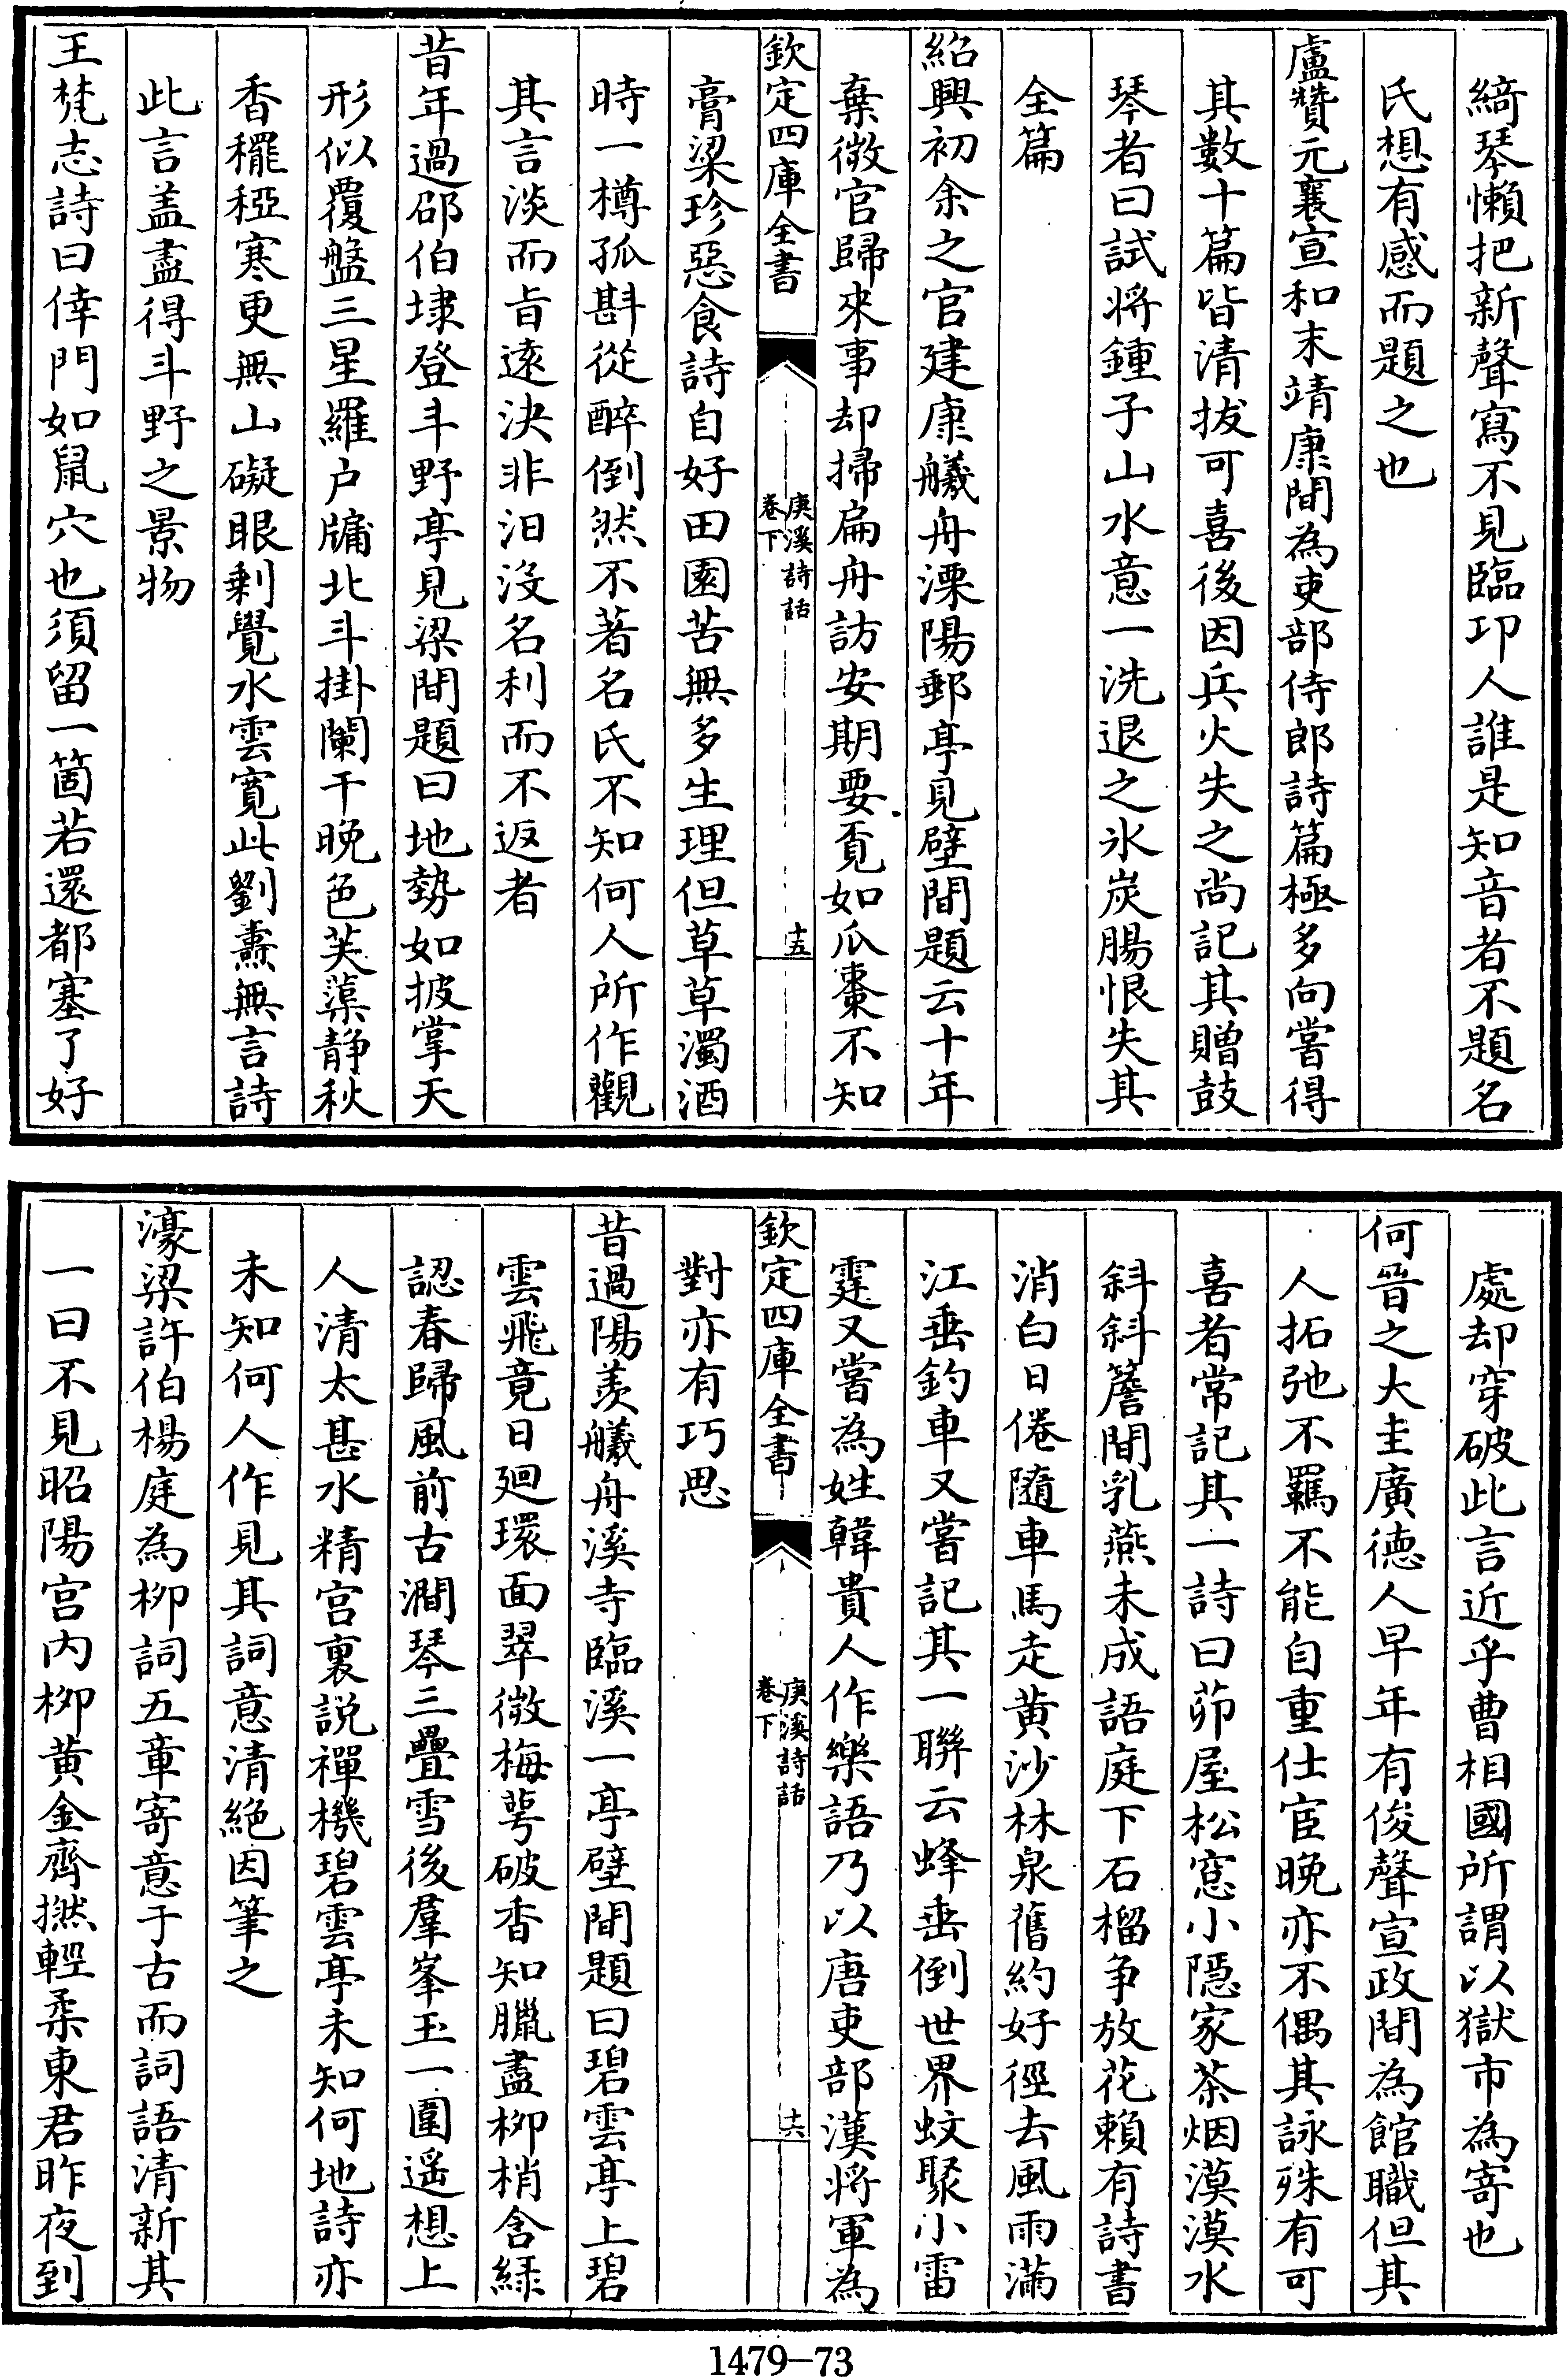 綺琴懶把新聲寫不見臨卭人誰是知音者不題名
氏想有感而題之也
盧贊元襄宣和末靖康間為吏部侍郎詩篇極多向嘗得
其數十篇皆清拔可喜後因兵火失之尚記其贈鼓
琴者曰試将鍾子山水意一洗退之氷炭腸恨失其
全篇
紹興初余之官建康艤舟溧陽郵亭見壁間題云十年
棄微官歸來事却掃扁舟訪安期要覔如瓜棗不知
欽定四庫全書
庚溪詩話
卷下
十五
膏粱珍惡食詩自好田園苦無多生理但草草濁酒
時一樽孤斟從醉倒然不著名氏不知何人所作觀
其言淡而旨遠決非汨没名利而不返者
昔年過邵伯埭登斗野亭見梁間題曰地勢如披掌天
形似覆盤三星羅户牖北斗掛闌干晚色芙蕖静秋
香䆉稏寒更無山礙眼剰覺水雲寛此劉燾無言詩
此言盖盡得斗野之景物
王梵志詩曰倖門如鼠穴也須留一箇若還都塞了好
處却穿破此言近乎曹相國所謂以獄市為寄也
何晉之大圭廣徳人早年有俊聲宣政間為館職但其
人拓弛不羈不能自重仕宦晚亦不偶其詠殊有可
喜者常記其一詩曰茆屋松窓小隠家茶烟漠漠水
斜斜簷間乳燕未成語庭下石榴争放花賴有詩書
消白日倦隨車馬走黄沙林泉舊約好徑去風雨滿
江垂釣車又嘗記其一聯云蜂垂倒世界蚊聚小雷
霆又嘗為姓韓貴人作樂語乃以唐吏部漢将軍為
欽定四庫全書
庚溪詩話
卷下
十六
對亦有巧思
昔過陽羨艤舟溪寺臨溪一亭壁間題曰碧雲亭上碧
雲飛竟日廻環面翠微梅萼破香知臘盡栁梢含緑
認春歸風前古澗琴三疊雪後羣峯玉一圍遥想上
人清太甚水精宫裏説禪機碧雲亭未知何地詩亦
未知何人作見其詞意清絶因筆之
濠梁許伯楊庭為栁詞五章寄意于古而詞語清新其
一曰不見昭陽宫内栁黄金齊撚輕柔東君昨夜到
1479—73